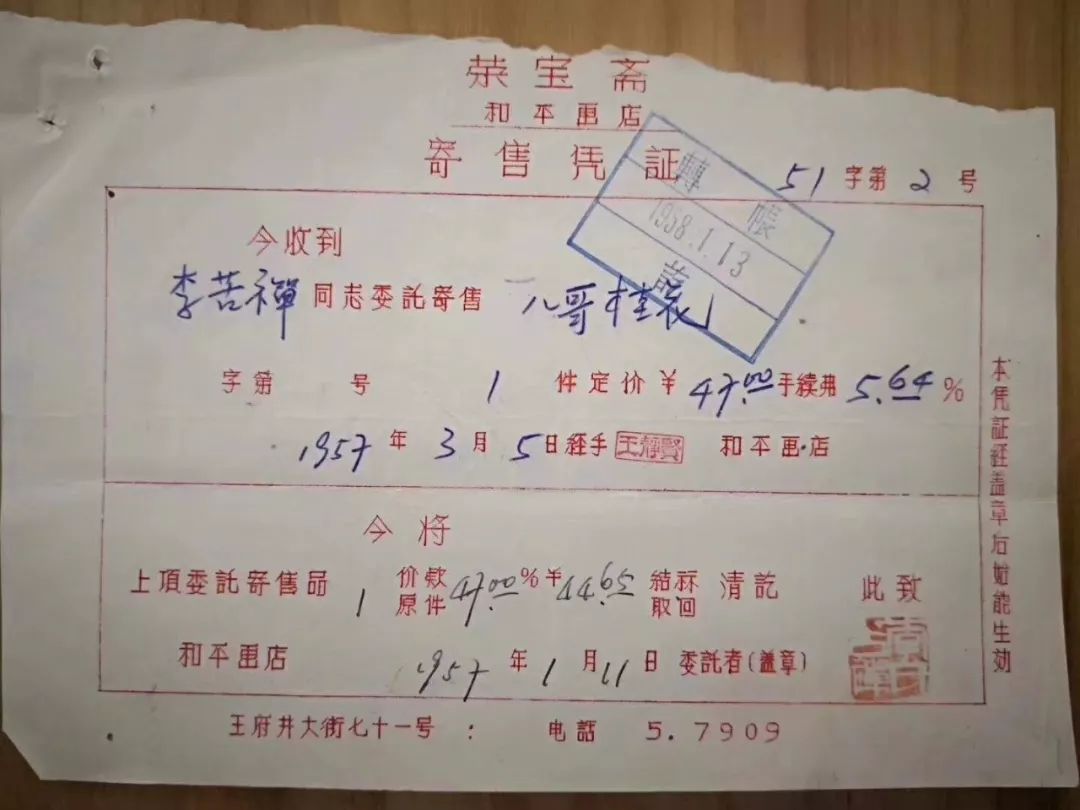 荣宝斋
和平画店
寄售凭証
51字第2号
轉帳
1958.1.13
今收到
李苦禅同志委託寄售 八哥
字第 号 1 件定价￥47.00手續费5.64%
1957年3月5日經手 王靜賢 和平画店
今将
上項委託寄售品 1 价款原件 47.00%￥ 结 取回 清訖 此致
和平画店 1957年1月11日 委託者(盖章)
王府井大街七十一号 : 电話 5.7909
本凭証經盖章后始能生効